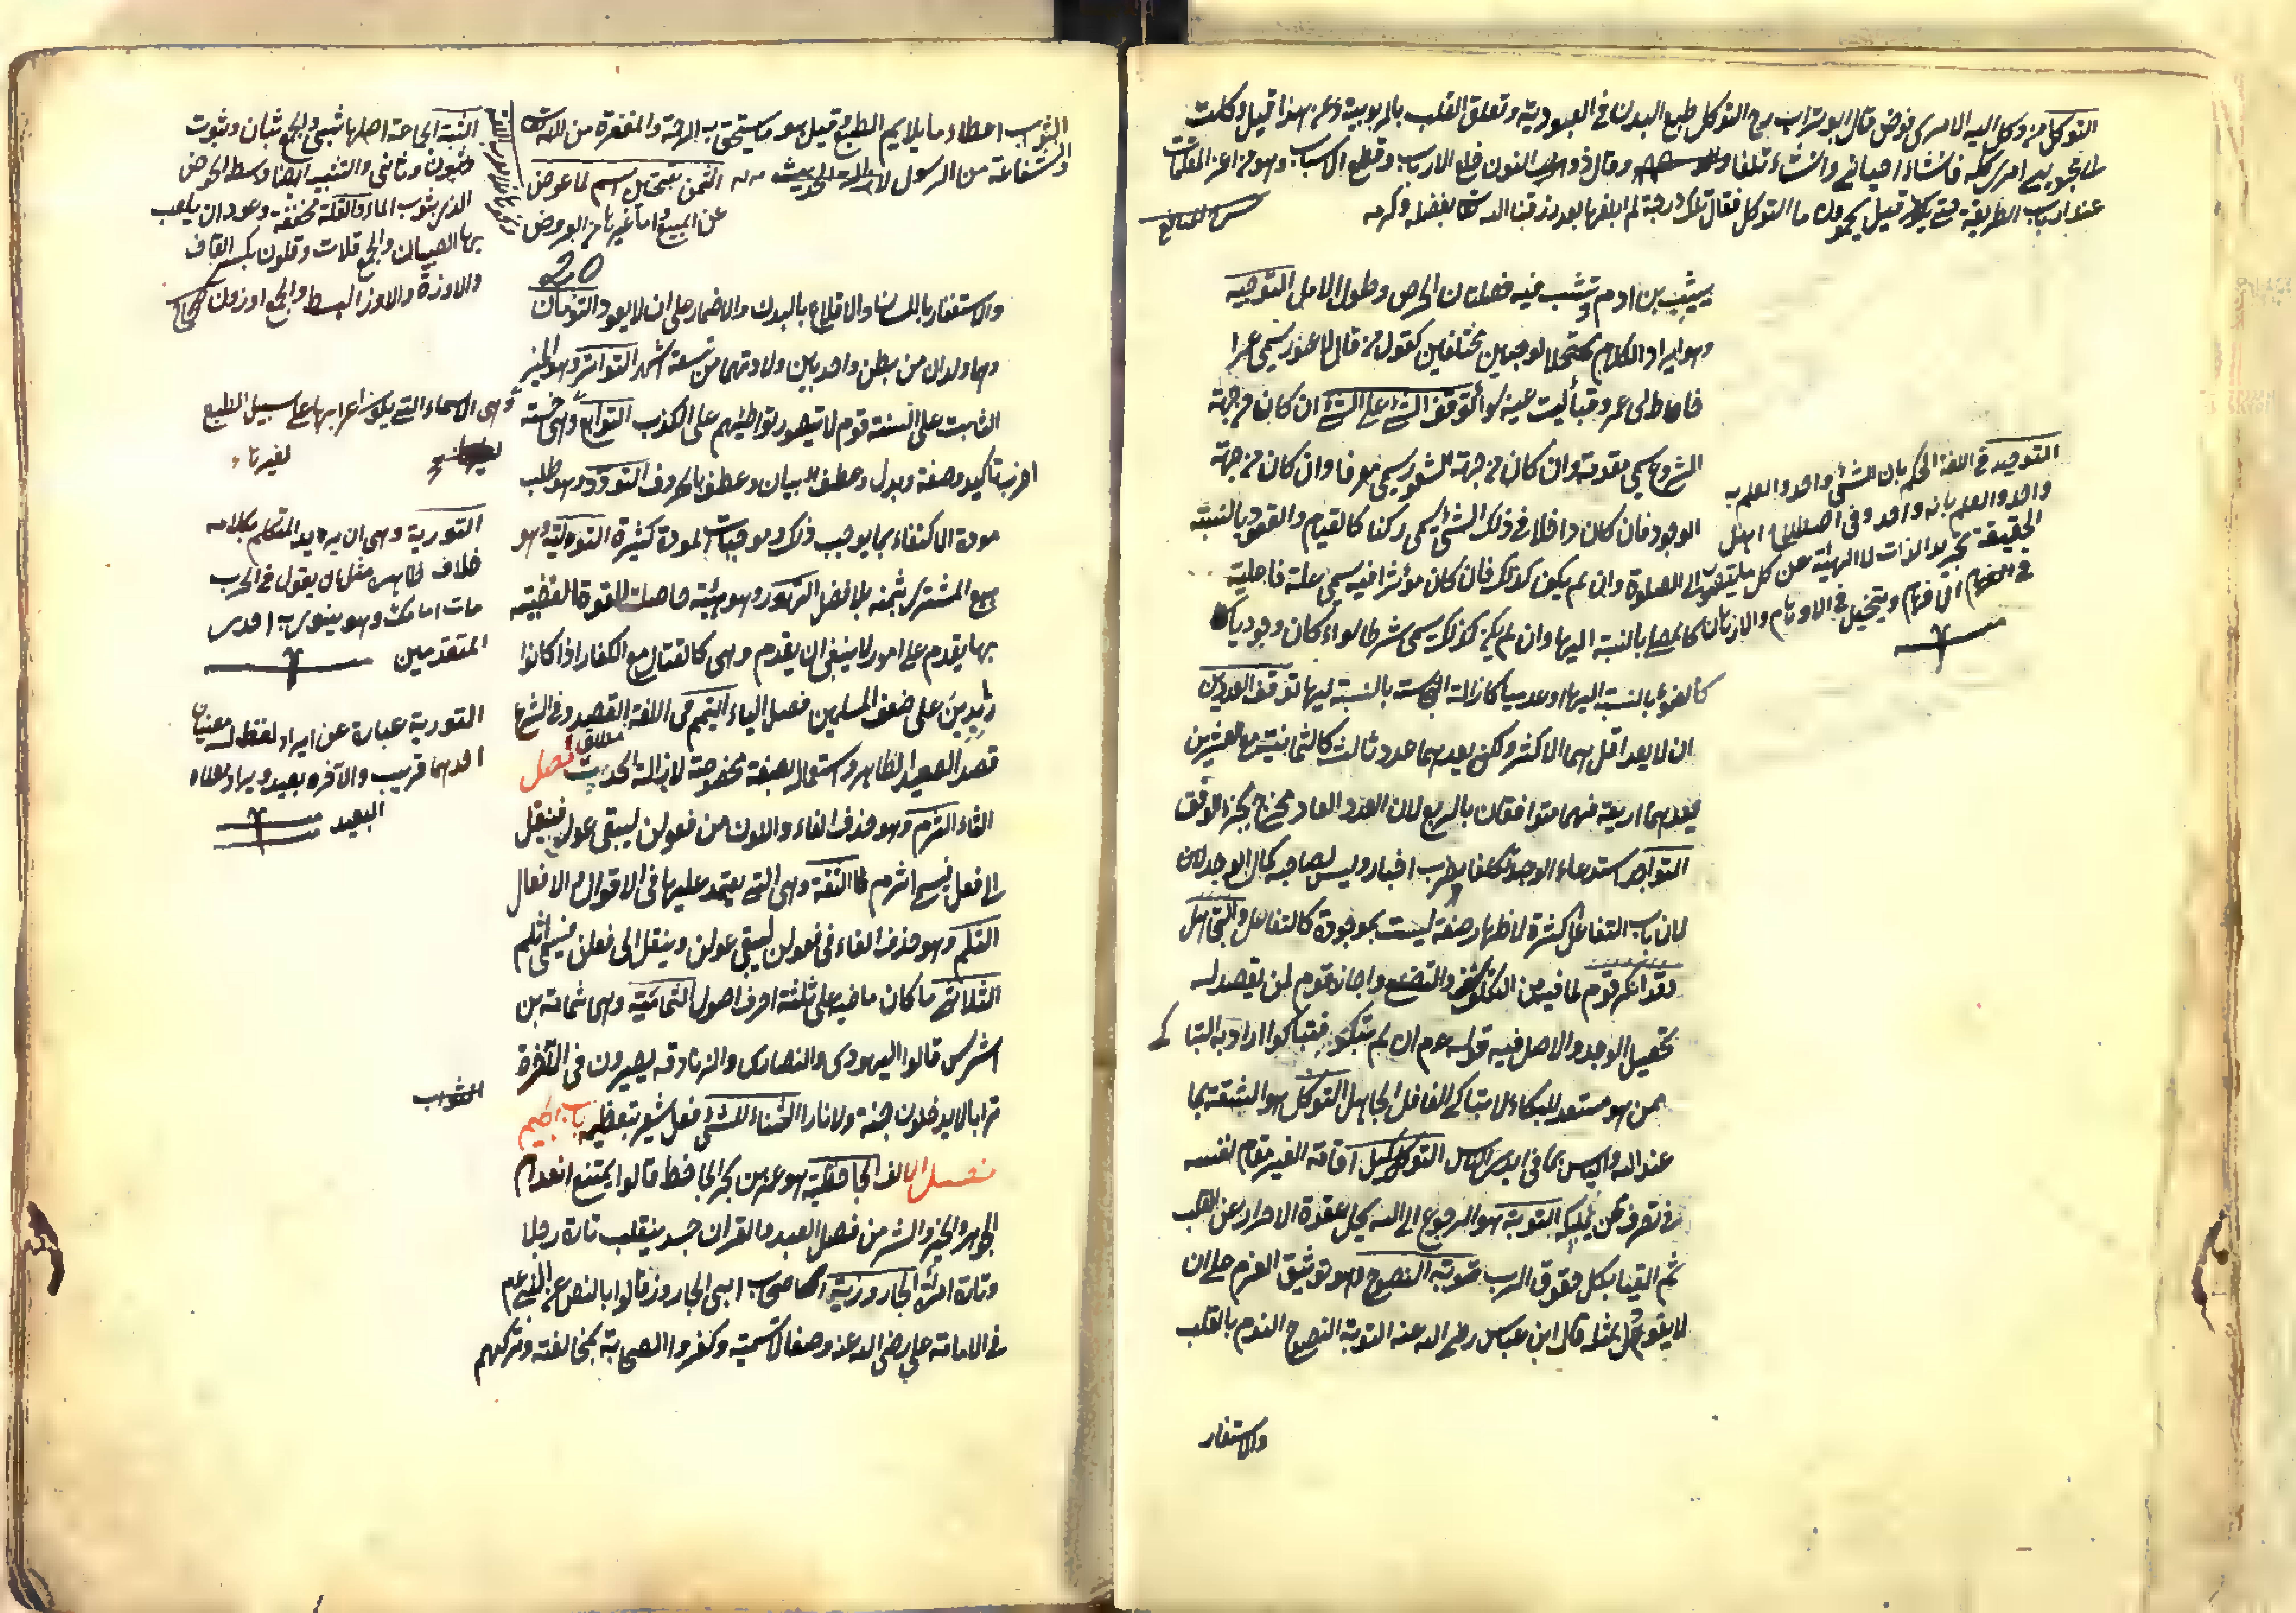 التوكل من وكل اليه الامر اى فوض قال ابو تراب رح التوكل طبع البدن فى العبودية وتعلق القلب بالربوبية وعن هذا قيل وكلت
الى المحبوب امرى كله فان شاء احيانى وان شاء تلفا وقال ذو النون خلع الارباب وقطع الاسباب وهو من اعز المقامات
عند ارباب الطريقة حتى قيل ما التوكل فقال تلك درجة لم ابلغها بعد رزقنا الله تعالى بفضله وكرمه
يشيب بن ادم وتشب فيه خصلتان الحرص وطول الامل التوجيه
وهو ايراد الكلام محتملا لوجهين مختلفين كقول من قال لاعور يسمى عمرا
خاط لى عمرو قبا ليت عينيه سواء توقف الشئ على الشئ ان كان من جهة
الشروع يسمى مقدمة وان كان من جهة الشعور يسمى معرفا وان كان من جهة
الوجود فان كان داخلا فى ذلك الشئ يسمى ركنا كالقيام والقعود بالنسبة
الى الصلوة وان لم يكن كذلك فان كان مؤثرا فيه يسمى علة فاعلية
كالمصلى بالنسبة اليها وان لم يكن كذلك يسمى شرطا سواء كان وجوديا
كالوضوء بالنسبة اليها او عدميا كازالة النجاسة بالنسبة اليها توقف العددين
ان لا يعد اقل هما الاكثر ولكن يعدهما عدد ثالث كالثمانية مع العشرين
يعدهما اربعة فهما متوافقان بالربع لان العدد العاد مخرج لجزء الوفق
التواجد استدعاء الوجد تكلفا بضرب اختيار وليس لصاحبه كمال الوجد لان
لان باب التفاعل اكثره لاظهار صفة ليست بموجودة كالتغافل والتجاهل
وقد انكره قوم لما فيه من التكلف والتصنع واجازه قوم لمن يقصد له
تحصيل الوجد والاصل فيه قوله عم ان لم تبكوا فتباكوا اراد به التباكى
ممن هو مستعد للبكاء لا تباكى الغافل الجاهل التوكل هو الثقة بما
عند الله والياس بما فى ايدى الناس التوكيل اقامة الغير مقام نفسه
فى تصرف ممن يملكه التوبة هو الرجوع الى الله بحل عقدة الاصرار عن القلب
ثم القيام بكل حقوق الرب توبة النصوح هو توثيق العزم على ان
لا يعود بمثله قال ابن عباس رضى الله عنه التوبة النصوح الندم بالقلب
والاستغفار
التوحيد فى اللغة الحكم بان الشئ واحد والعلم به
واحد والعلم بانه واحد وفى اصطلاح اهل
الحقيقة تجريد الذات الالهية عن كل ما يتصور
فى الافهام ويتخيل فى الاوهام والاذهان
الثواب اعطاء ما يلايم الطبع وقيل هو ما يستحق به الرحمة والمغفرة من الله تعالى
والشفاعة من الرسول الثمن اسم لما هو عوض
عن المبيع
20
والاستغفار باللسان والاقلاع بالبدن والاضمار على ان لا يعود التؤمان
وهما ولدان من بطن واحد بين ولادتهما من ستة اشهر التواتر وهو الخبر
الثابت على السنة قوم لا يتصور تواطئهم على الكذب التوابع وهى خمسة
اضرب تاكيد وصفة وبدل وعطف بيان وعطف بالحروف التودد وهو طلب
مودة الاكتفاء بما يوجب ذلك وموجبات المودة كثيرة التولية وهو
بيع المشترى بثمنه بلا فضل التهور وهو هيئة حاصلة للقوة الغضبية
بها يقدم على امور لا ينبغى ان يقدم وهى كالقتال مع الكفار اذا كانوا
زايدين على ضعف المسلمين فصل الياء التيمم فى اللغة القصد وفى الشرع
قصد الصعيد الطاهر واستعماله بصفة مخصوصة لازالة الحدث فصل
الثاء الثرم وهو حذف الفاء والنون من فعولن ليبقى عول فينقل
الى فعل فيسمى اثرم الثقة وهى التى يعتمد عليها فى الاقوال والافعال
الثلم وهو حذف الفاء فى فعولن ليبقى عولن وينقل الى فعلن فيسمى اثلم
الثلاثى ما كان ماضيه على ثلثة احرف اصول الثمامية وهى ثمامة بن
اشرس قالوا اليهودى والنصارى والزنادقة يصيرون فى الآخرة
ترابا لا يدخلون جنة ولا نارا الثناء للشئ فعل يشعر بتعظيمه باب الجيم
فصل الالف الجاحظية هو عمرو بن بحر الجاحظ قالوا يمتنع انعدام
الجوهر والخير والشر من فصل العبد والقران جسد ينقلب تارة رجلا
وتارة امراة الجارودية اصحاب ابى الجارود قالوا بالنص عن النبى عم
فى الامامة على رضى الله عنه وصفا لا تسمية وكفروا الصحابة بمخالفته وتركهم
الثبة الجماعة اصلها ثبى والجمع ثبات وثبون
وثبون وثانى والثبة ايضا وسط الحوض
الذى يثوب الماء والقلة مخففة وعود ان يلعب
بها الصبيان والجمع قلات وقلون بكسر القاف
والاوزة والاوز البط والجمع اوزون
وهى الاسماء التى يكون اعرابها على سبيل التبع
لغيرها
التورية وهى ان يريد المتكلم بكلامه
خلاف ظاهره مثل ان يقول فى الحرب
مات امامكم وهو ينوى به احدى
المتقدمين
التورية عبارة عن ايراد لفظ له معنيان
احدهما قريب والآخر بعيد ويراد معناه
البعيد
الثواب